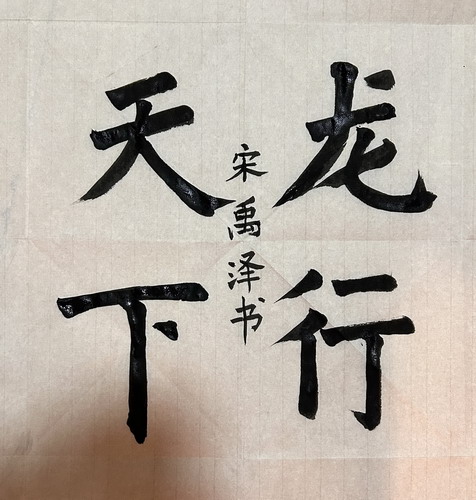 龙行
天下
宋禹泽书